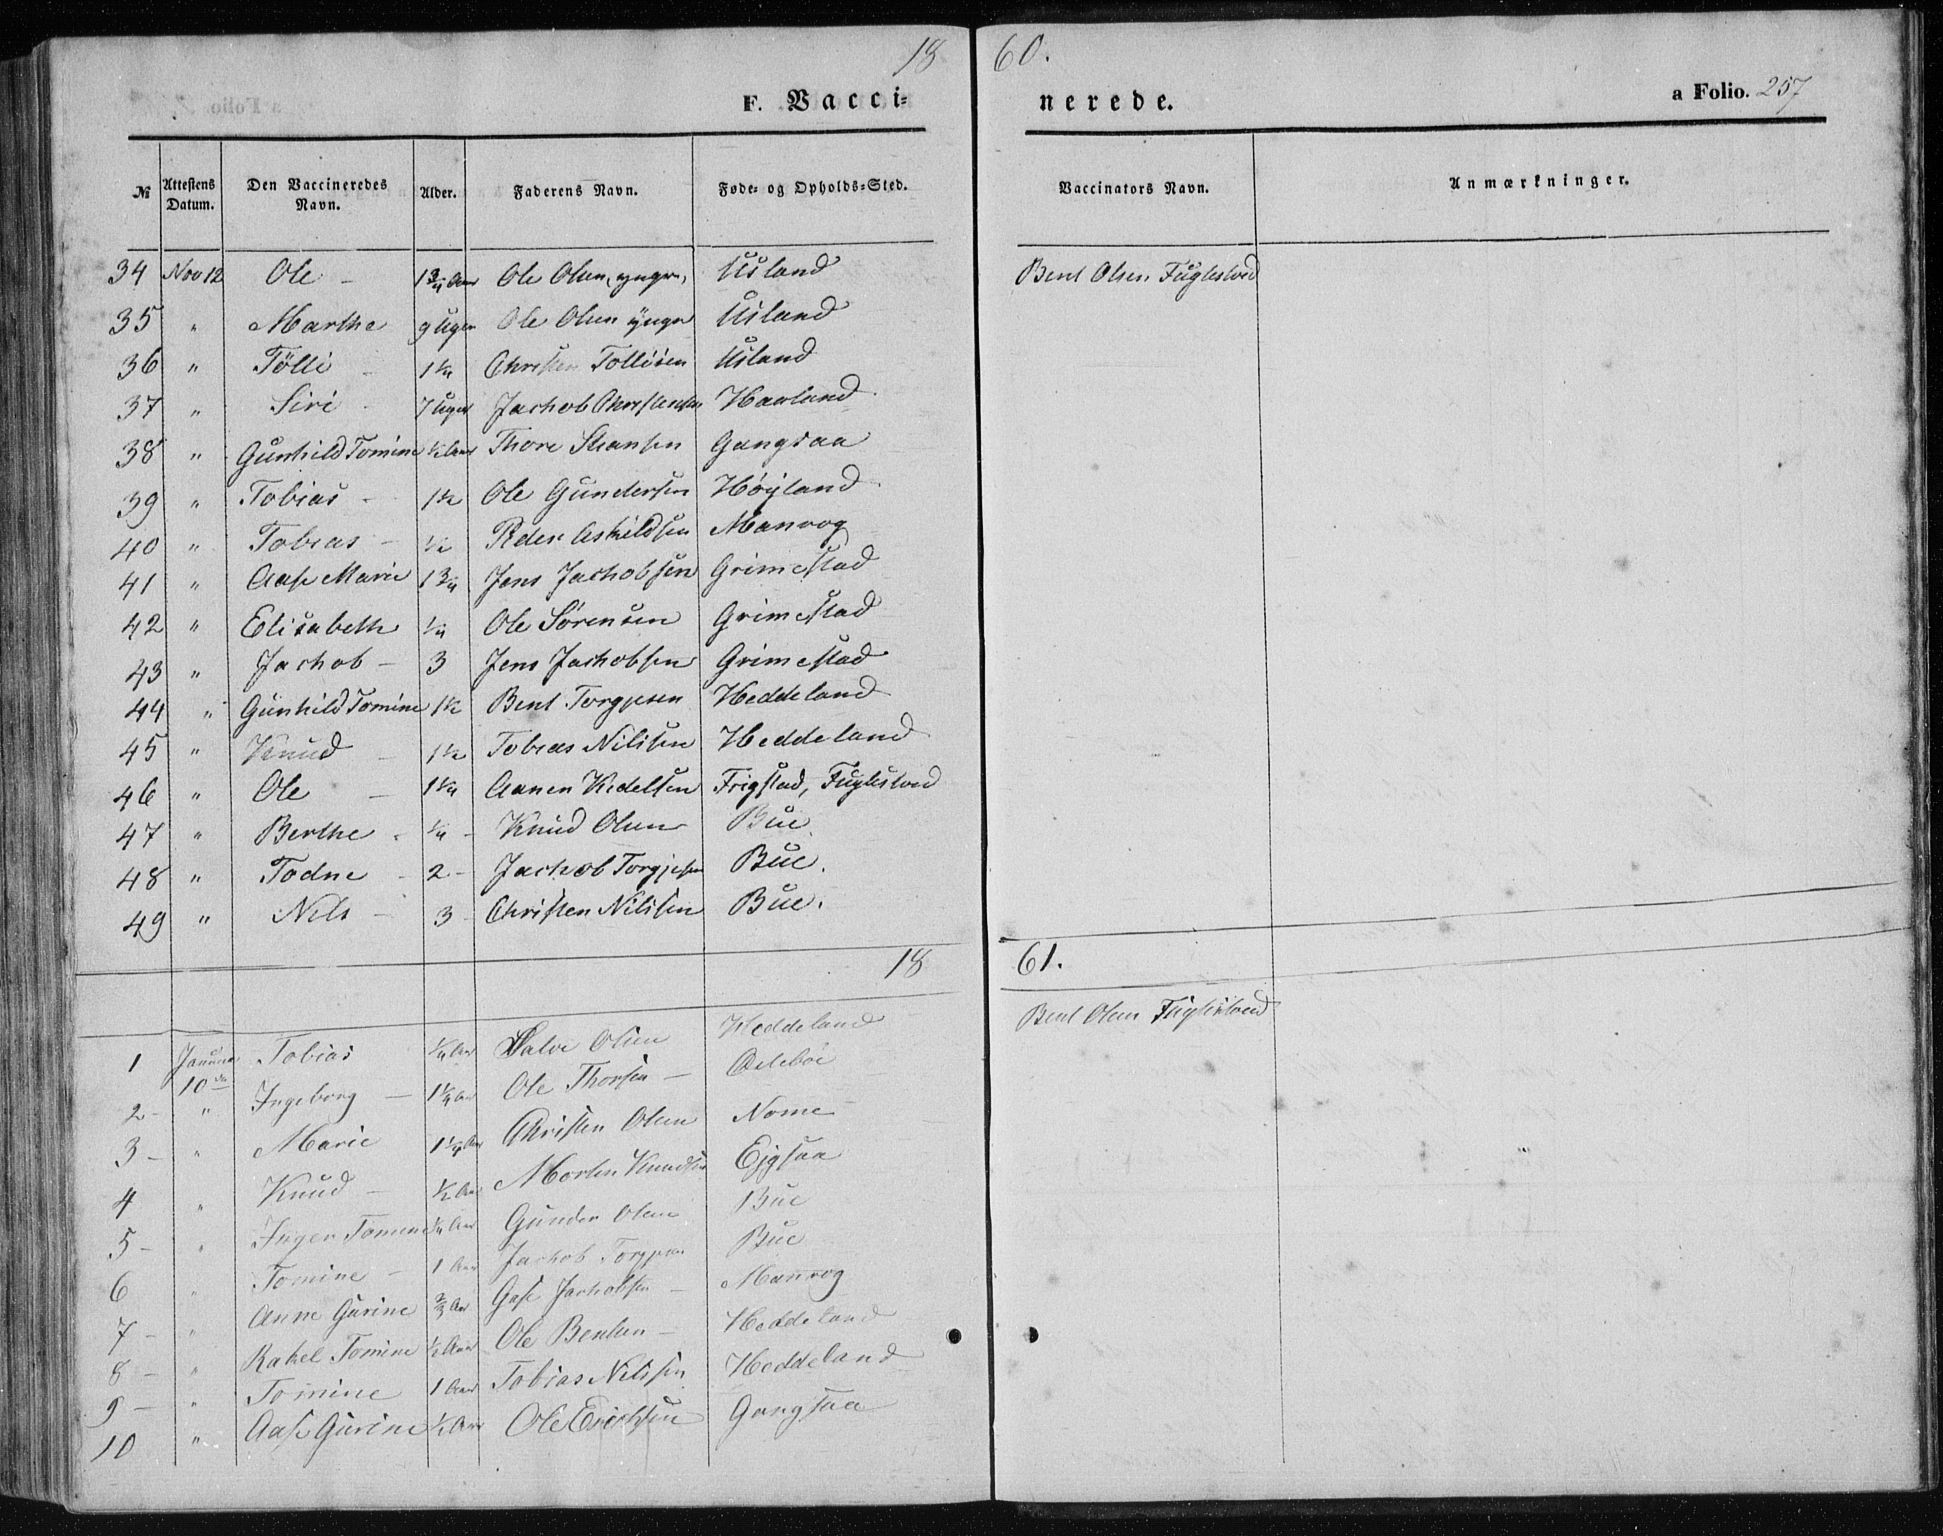 1860.
F. Vaccinerede. a Folio. 257
№ Attestens Datum. Den Vaccineredes Navn. Alder. Faderens Navn. Føde- og Opholds-Sted. Vaccinators Navn. Anmærkninger.
34 Nov 12 Ole - 1 3/4 Aar Ole Olsen, yngre, Usland Bent Olsen Fuglestved
35 " Marthe 9 Uger Ole Olsen yngre Usland
36 " Tölli - 1 1/4 Christen Tollisen Usland
37 " Siri - 7 Uger Jachob Christensen Haaland
38 " Gunhild Tomine 1/2 Aar Thore Stiansen Gangsaa
39 " Tobias - 1 1/2 Ole Gundersen Høyland
40 " Tobias - 1/2 Peder Askildsen Manvog
41 " Aase Marie 1 3/4 Jens Jachobsen Grimestad
42 " Elisabeth 1/4 Ole Sørensen Grimestad
43 " Jachob - 3 Jens Jachobsen Grimestad
44 " Gunhild Tomine 1 1/2 Bent Torgjesen Heddeland
45 " Knud - 1 1/2 Tobias Nilssen Heddeland
46 " Ole - 1 1/4 Aanen Kedelsen Frigstad, Fuglestved
47 " Berthe - 1/4 - Knud Olsen Bue
48 " Todne - 2 - Jachob Torgjesen Bue.
49 " Nels - 3 - Christen Nilssen Bue.
1861.
1 Januar 10de Tobias 1/4 Aar Salve Olsen Heddeland Bent Olsen Fuglestved
2 - " Ingeborg - 1 1/4 Aar Ole Thorsen - Odebøe
3 - " Marie 1 1/4 Aar Christen Olsen Nome
4 " Knud - 1/2 Aar Morten Knudsen Ejgsaa
5 - " Inger Tomine 1/4 Aar Gunder Olsen Bue
6 " Tomine - 1 Aar Jachob Torgjesen Bue
7 - " Anne Gurine 2/3 Aar Gase Jachobsen - Manvog
8 - " Rakel Tomine 1/2 Aar Ole Bentsen - Heddeland
9 - " Tomine 1 Aar Tobias Nilssen Heddeland
10 " Aase Gurine 1/2 Aar Ole Erichsen Gangsaa